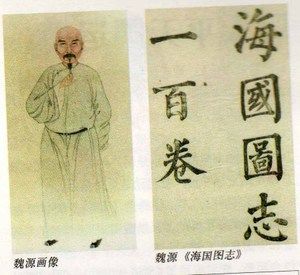 海國圖志
一百卷
魏源画像
魏源《海国图志》